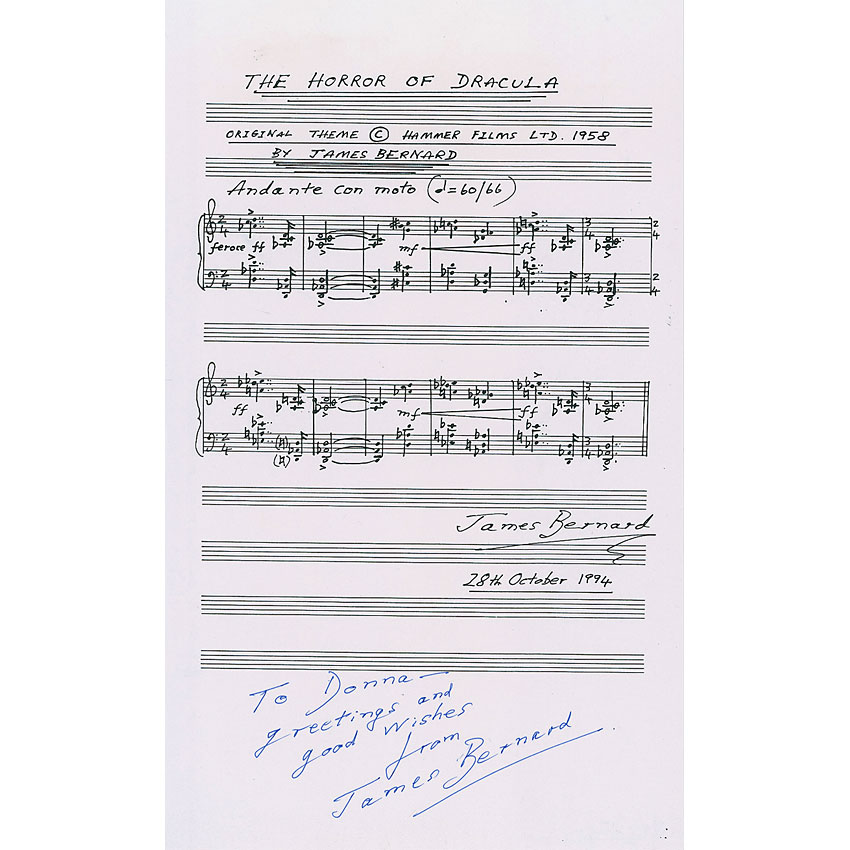 THE HORROR OF DRACULA
ORIGINAL THEME © HAMMER FILMS LTD. 1958
BY JAMES BERNARD
Andante con moto (♩=60/66)
2/4 3/4 2/4
feroce ff mf ff
2/4 3/4 2/4
2/4 3/4
ff mf ff
2/4 3/4
James Bernard
28th October 1994
To Donna —
greetings and
good wishes
from
James Bernard